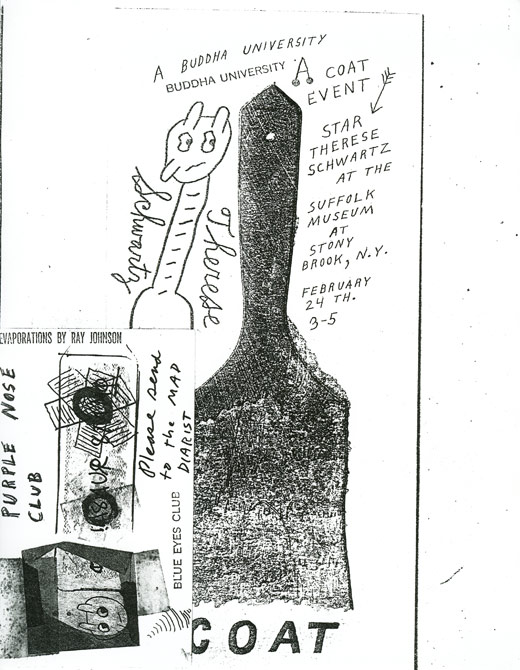 A BUDDHA UNIVERSITY
BUDDHA UNIVERSITY
A COAT
EVENT
STAR
THERESE
SCHWARTZ
AT THE
SUFFOLK
MUSEUM
AT
STONY
BROOK, N.Y.
FEBRUARY
24 TH.
3-5
Schwartz
Therese
EVAPORATIONS BY RAY JOHNSON
PURPLE NOSE
CLUB
Please send
to the MAD
DIARIST
BLUE EYES CLUB
COAT